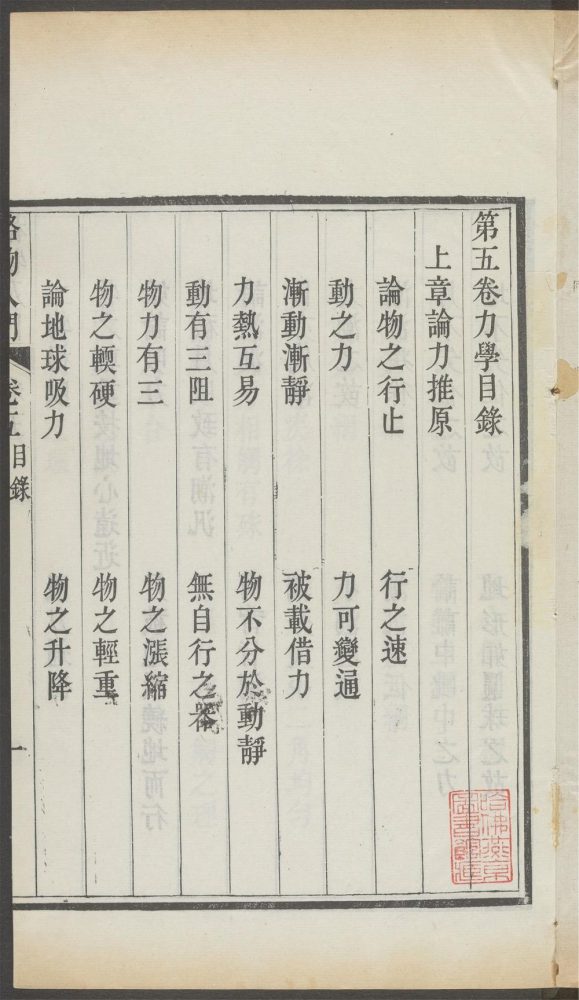 第五卷力學目錄
上章論力推原
論物之行止 行之速
動之力 力可變通
漸動漸靜 被載借力
力熱互易 物不分於動靜
動有三阻 無自行之器
物力有三 物之漲縮
物之輭硬 物之輕重
論地球吸力 物之升降
格物入門 卷五目錄 一
哈佛燕京圖書館